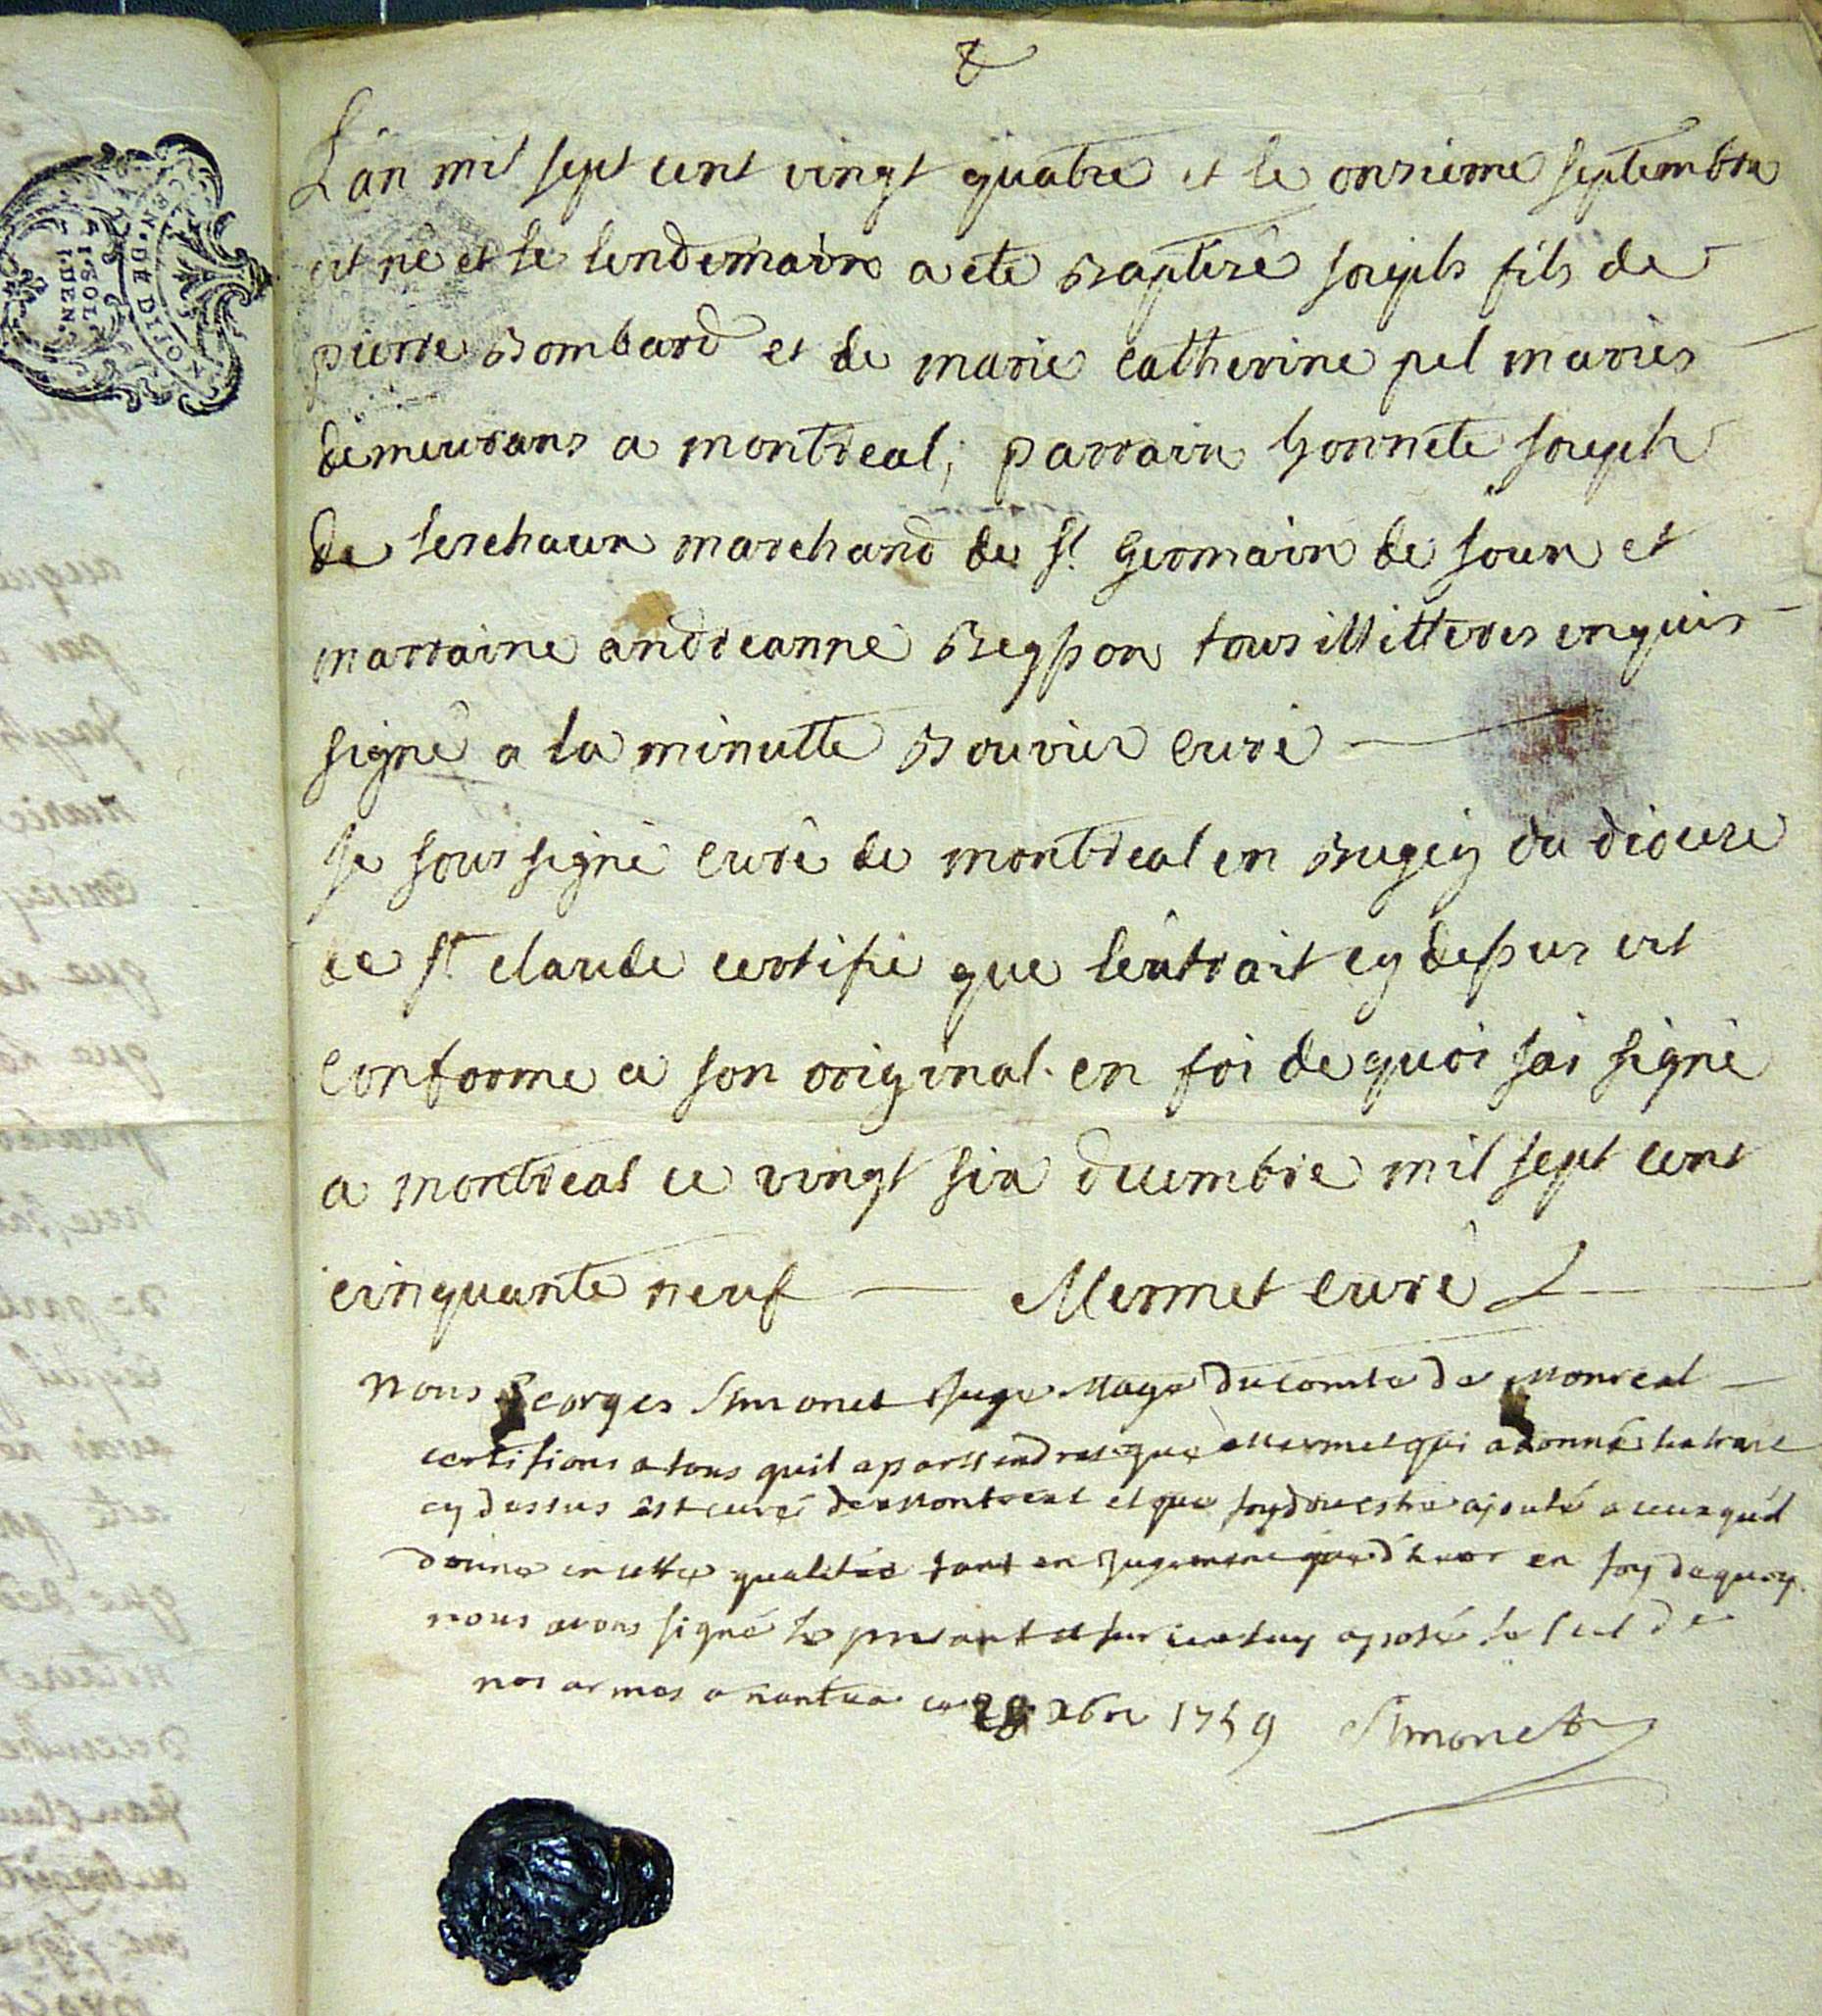 &
L'an mil sept cent vingt quatre et le onzieme septembre
est né et le lendemain a eté Baptisé joseph fils de
pierre Bombard et de marie catherine pel mariés
demeurans a montreal; parrain honnete joseph
de leschaux marchand de St. Germain de joux et
marraine andreanne Beysson tous illitteres enquis
signé a la minutte Bouvier curé
je sous signé curé de montreal en Bugey du diocese
de St claude certifie que l'extrait cy dessus est
conforme a son original. en foi de quoi j'ai signé
a montreal ce vingt six decembre mil sept cent
cinquante neuf Mermet curé
nous Georges Simonet juge Mage du comte de Monreal
certifions a tous quil apartiendrat que Mermet qui a donné lextrait
cy dessus est curé de Montreal et que foy doit estre ajouté a ceux quil
donne en cette qualitée tant en Jugement que dhuor en foy de quoy
nous avons signé le presant et sur iceluy aposé le seel de
nos armes a nantua ce 28 xbre 1759 Simonet
EN. DE DIJON
I. SOL.
I. DEN.